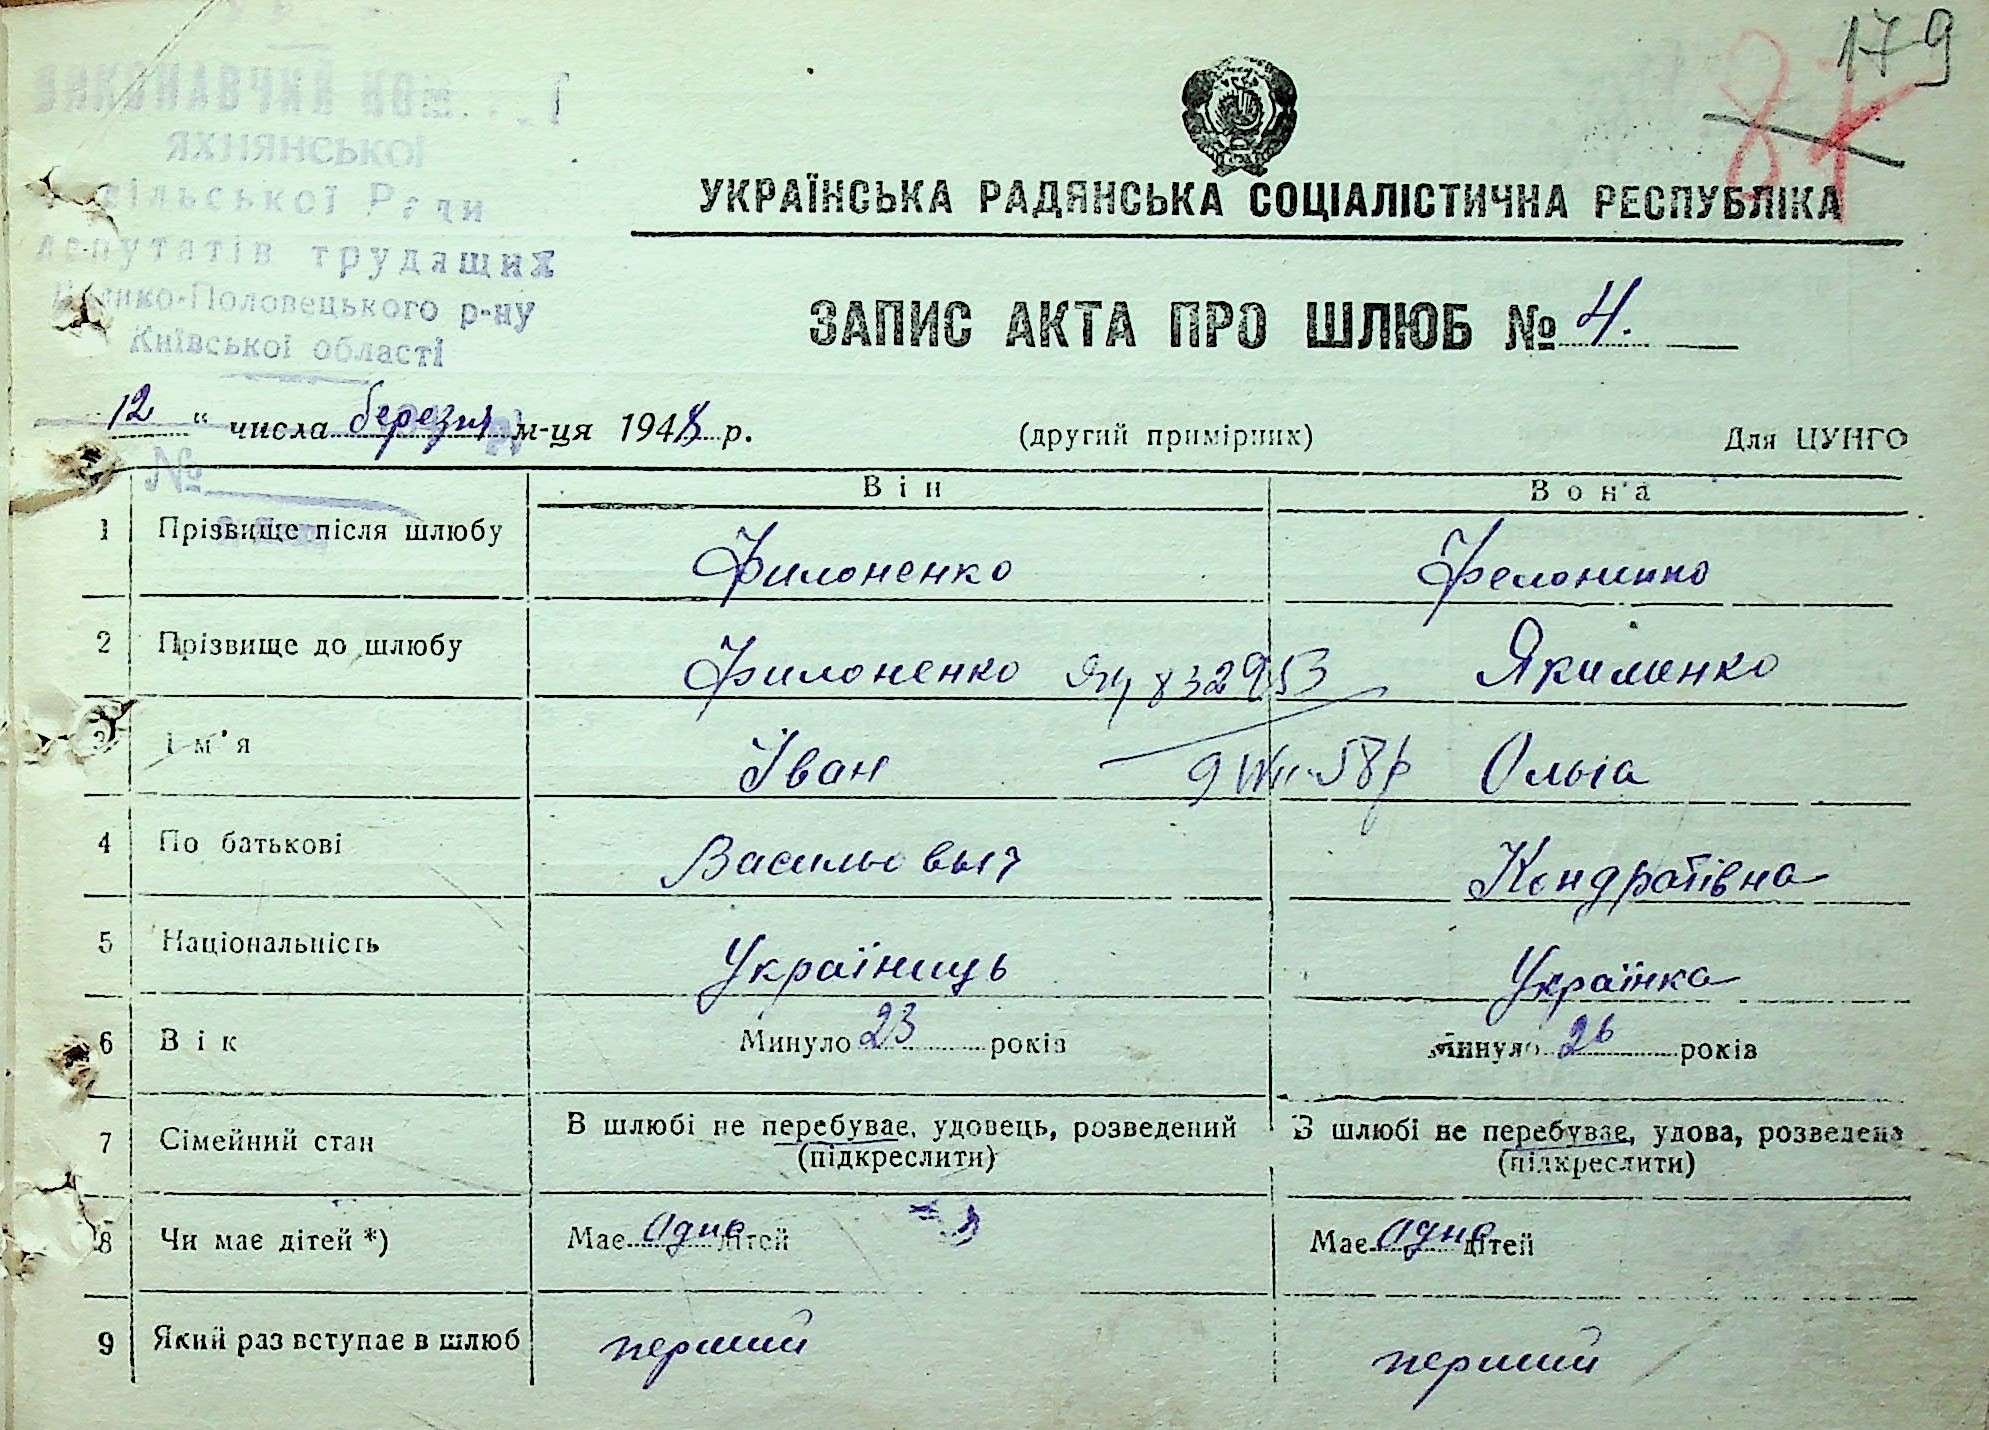 179
87
ЯХНЯНСЬКОЇ
сільської Ради
депутатів трудящих
Велико-Половецького р-ну
Київської області
№
УКРАЇНСЬКА РАДЯНСЬКА СОЦІАЛІСТИЧНА РЕСПУБЛІКА
ЗАПИС АКТА ПРО ШЛЮБ № 4.
12 " числа березня м-ця 1948 р. (другий примірник) Для ЦУНГО
Він Вона
1 Прізвище після шлюбу Филоненко Фелоненко
2 Прізвище до шлюбу Филоненко 832953 Якименко
3 Ім'я Іван 9 VIII-58р Ольга
4 По батькові Васильовыч Кондратівна
5 Національність Україниць Українка
6 Вік Минуло 23 років Минуло 26 років
7 Сімейний стан В шлюбі не перебуває, удовець, розведений В шлюбі не перебуває, удова, розведена
(підкреслити) (підкреслити)
8 Чи має дітей *) Має одно дітей Має одно дітей
9 Який раз вступає в шлюб перший перший